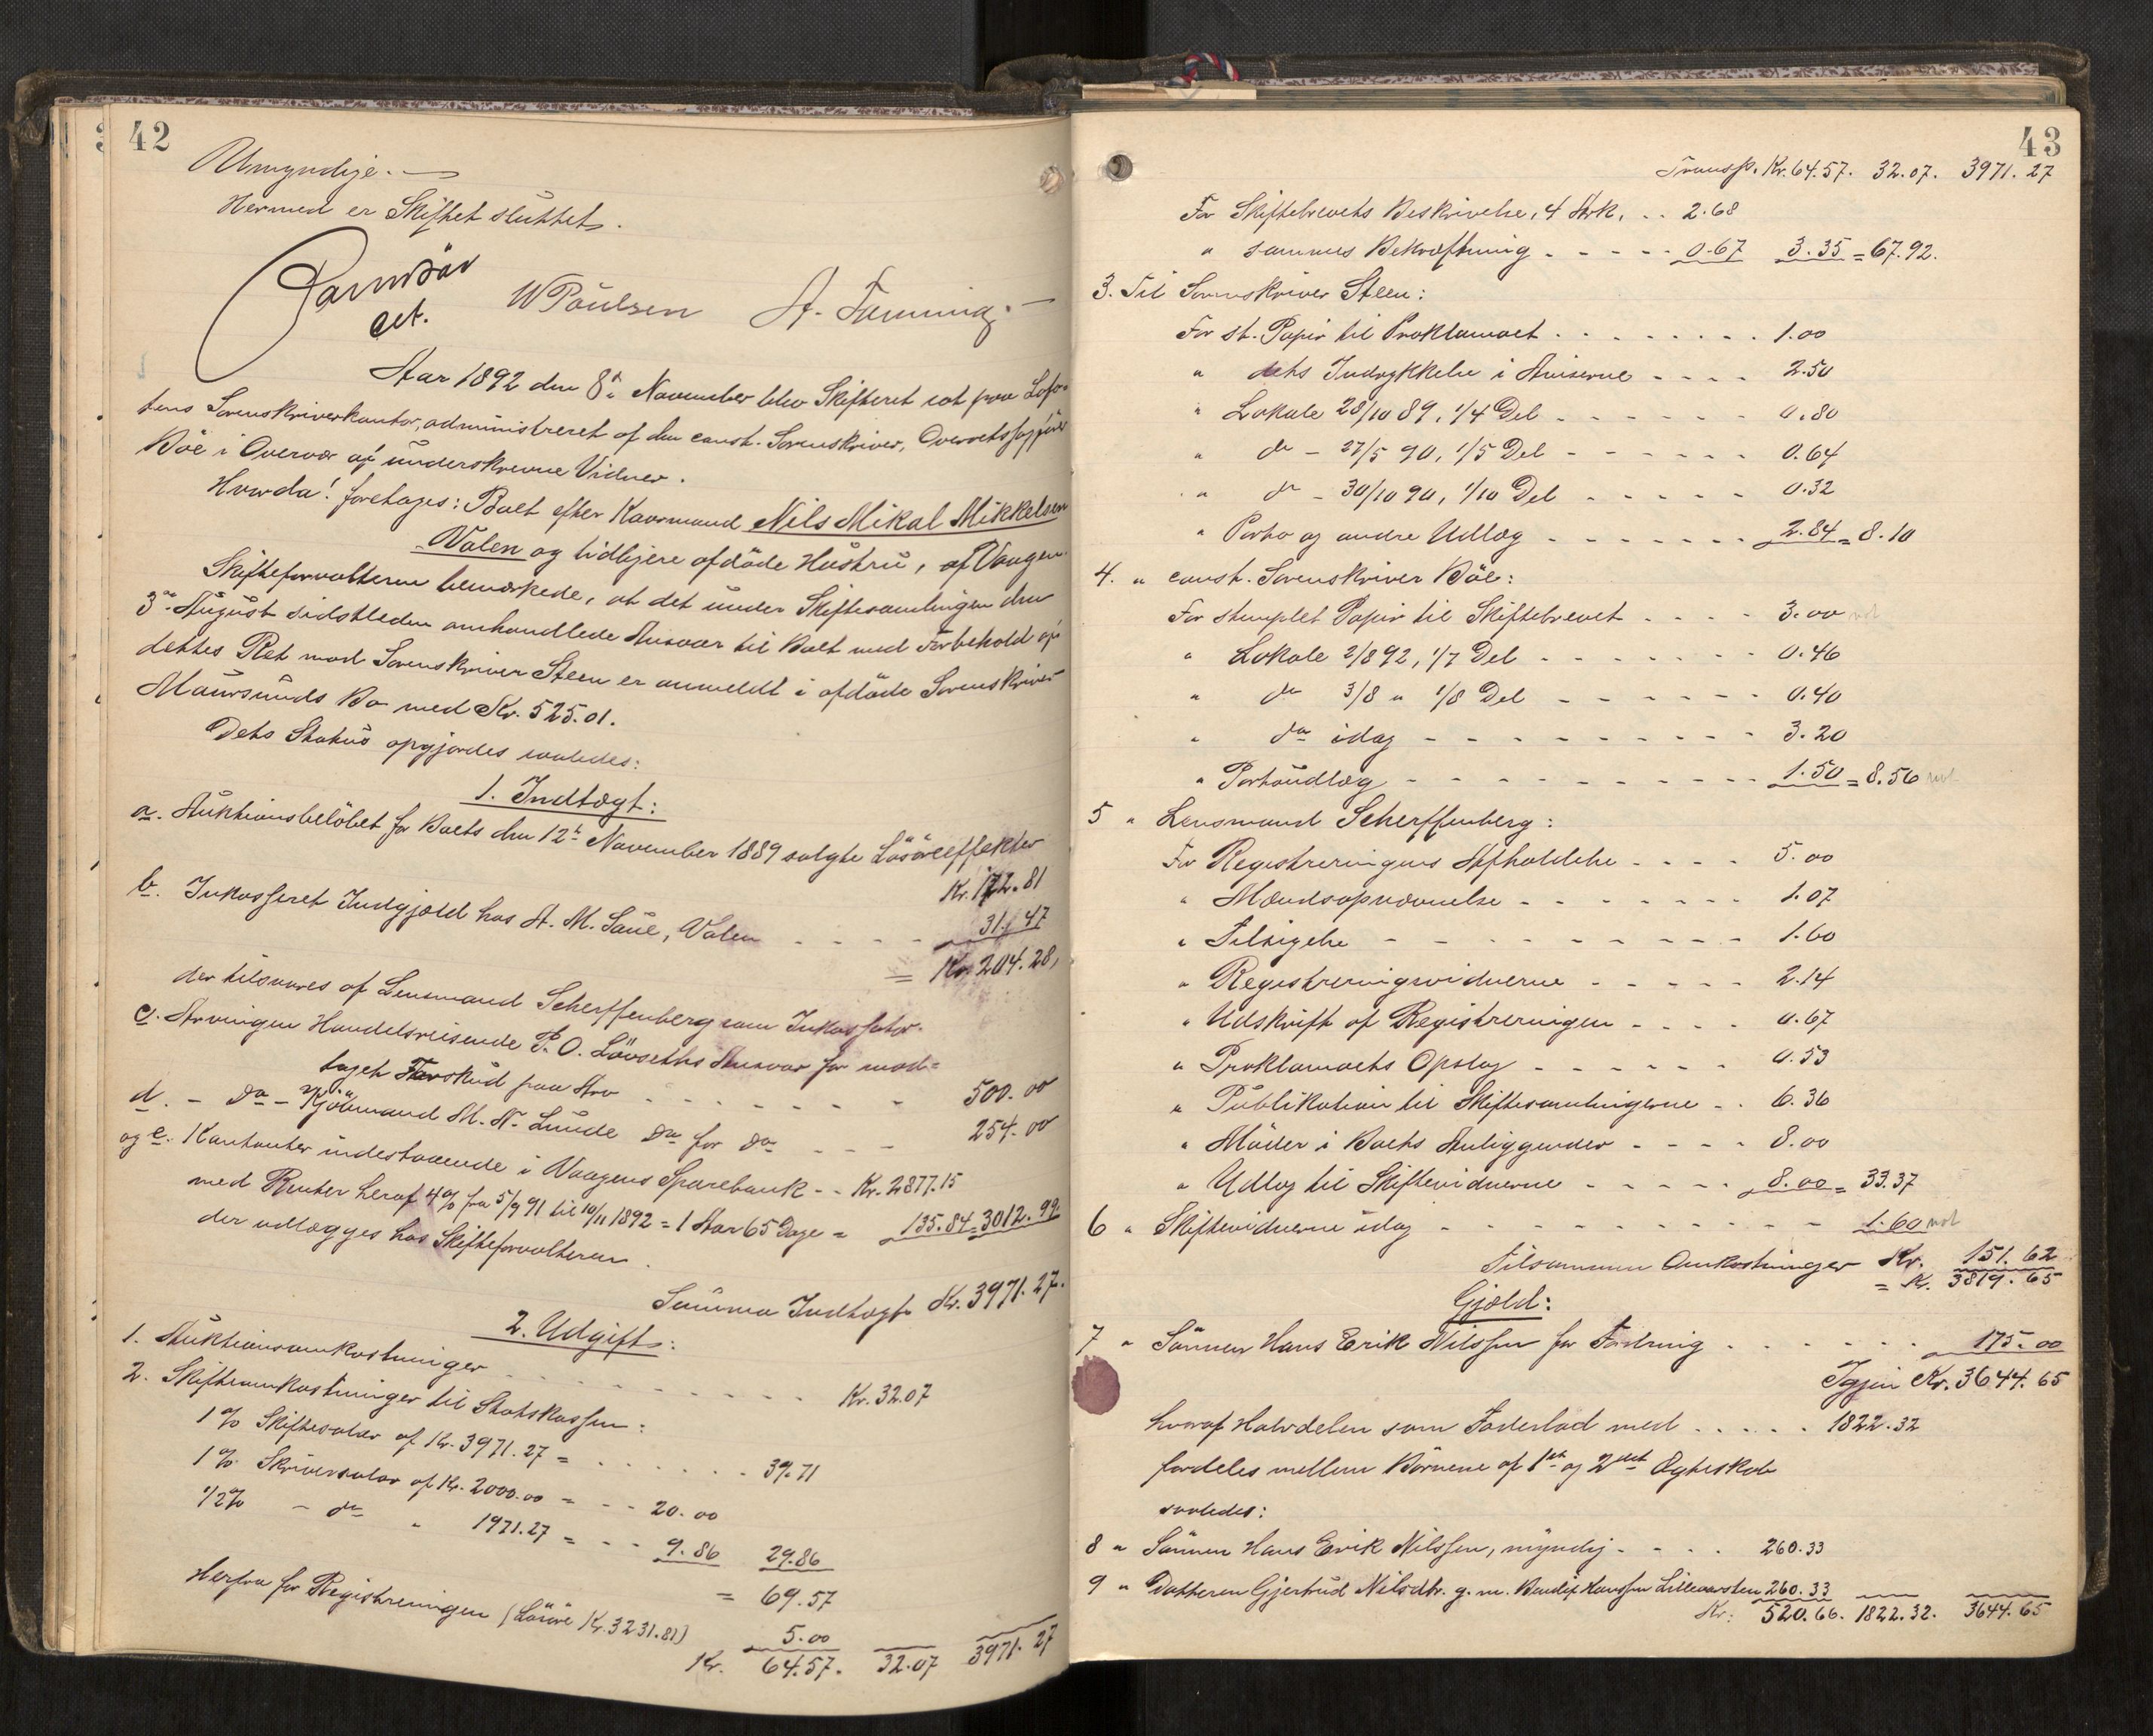 42
Umyndige.
Hermed er Skiftet sluttet.
cst.
W Poulsen
Aar 1892 den 8de November blev Skifteret sat paa Lofo-
tens Sorenskriverkontor, administreret af den const. Sorenskriver, Overretssagfører
Böe i Overvær af underskrevne Vidner.
Hvorda! foretages: Boet efter Kaarmand Nils Mikal Mikkelsen
Valen og tidligere afdöde Hustru, af Vaagen.
Skifteforvalteren bemærkede, at det under Skiftesamlingen den
3die August sidstleden omhandlede Ansvar til Boet med Forbehold af
dettes Ret mod Sorenskriver Steen er anmeldt i afdöde Sorenskriver
Maursunds Bo med Kr. 525.01.
Dets Status opgjordes saaledes:
1. Indtægt:
a. Auktionsbelöbet for Boets den 12te November 1889 solgte Lösöreeffekter
Kr. 172.81
b. Inkasseret Indgjæld hos A. M. Saue, Valen - - - - 31.47
= Kr. 204.28,
der tilsvares af Lensmand Scherffenberg som Inkassator.
c. Arvingen Handelsreisende P. O. Lövseths Ansvar for mod-
taget Forskud paa Arv - - - - - - 500.00
d. - do - Kjöbmand M. N. Lunde do for do - - - 254.00
og e. Kontanter indestaaende i Vaagens Sparebank - - Kr. 2877.15
med Renter heraf 4% fra 5/9 91 til 10/11 1892 = 1 Aar 65 Dage = 135.84 = 3012.99
der udlægges hos Skifteforvalteren.
Summa Indtægt Kr. 3971.27.
2. Udgift:
1. Auktionsomkostninger - - - - - - - - - Kr. 32.07
2. Skifteomkostninger til Statskassen:
1% Skiftesalær af Kr. 3971.27 = - - - - - - 39.71
1% Skriversalær af Kr. 2000.00 = - - - 20.00
1/2% - do " 1971.27 = - - - 9.86 29.86
= 69.57
Herfra for Registreringen (Lösöre Kr. 3231.81) 5.00
Kr. 64.57. 32.07 3971.27
43
Transp. Kr. 64.57. 32.07. 3971.27
For Skiftebrevets Beskrivelse, 4 Ark, . . 2.68
" sammes Bekræftning - - - - - 0.67 3.35 = 67.92.
3. Til Sorenskriver Steen:
For st. Papir til Proklamaet - - - - - - - - 1.00
" dets Indrykkelse i Aviserne - - - - 2.50
" Lokale 28/10 89, 1/4 Del - - - - - - 0.80
" do - 27/5 90, 1/5 Del - - - - - - 0.64
" do - 30/10 90, 1/10 Del - - - - - 0.32
" Porto og andre Udlæg - - - - - - - 2.84 = 8.10
4. " const. Sorenskriver Böe:
For stemplet Papir til Skiftebrevet - - - - 3.00
" Lokale 2/8 92, 1/7 Del - - - - - - - 0.46
" do 3/8 " 1/8 Del - - - - - - 0.40
" do idag - - - - - - - - - - 3.20
" Portoudlæg - - - - - - - - - - 1.50 = 8.56
5 " Lensmand Scherffenberg:
For Registreringens Afholdelse - - - - 5.00
" Mændsopnævnelse - - - - - - - 1.07
" Tilsigelse - - - - - - - - - - 1.60
" Registreringsvidnerne - - - - - 2.14
" Udskrift af Registreringen - - - - 0.67
" Proklamaets Opslag - - - - - - 0.53
" Publikation til Skiftesamlingerne - . 6.36
" Möder i Boets Anliggender - - - - 8.00
" Udlæg til Skiftevidnerne - - - - - 8.00 = 33.37
6 " Skiftevidnerne idag - - - - - - - - - - 1.60
Tilsammen Omkostninger Kr. 151.62
= Kr. 3819.65
Gjæld:
7 " Sönnen Hans Erik Nilssen for Fordring - - - - - - 175.00
Igjen Kr. 3644.65
hvoraf Halvdelen som Faderlod med . . . . . 1822.32
fordeles mellem Börnene af 1ste og 2det Ægteskab
saaledes:
8 " Sönnen Hans Erik Nilssen, myndig - - - - 260.33
9 " Datteren Gjertrud Nilsdtr. g. m. Hanssen 260.33
Kr. 520.66. 1822.32. 3644.65